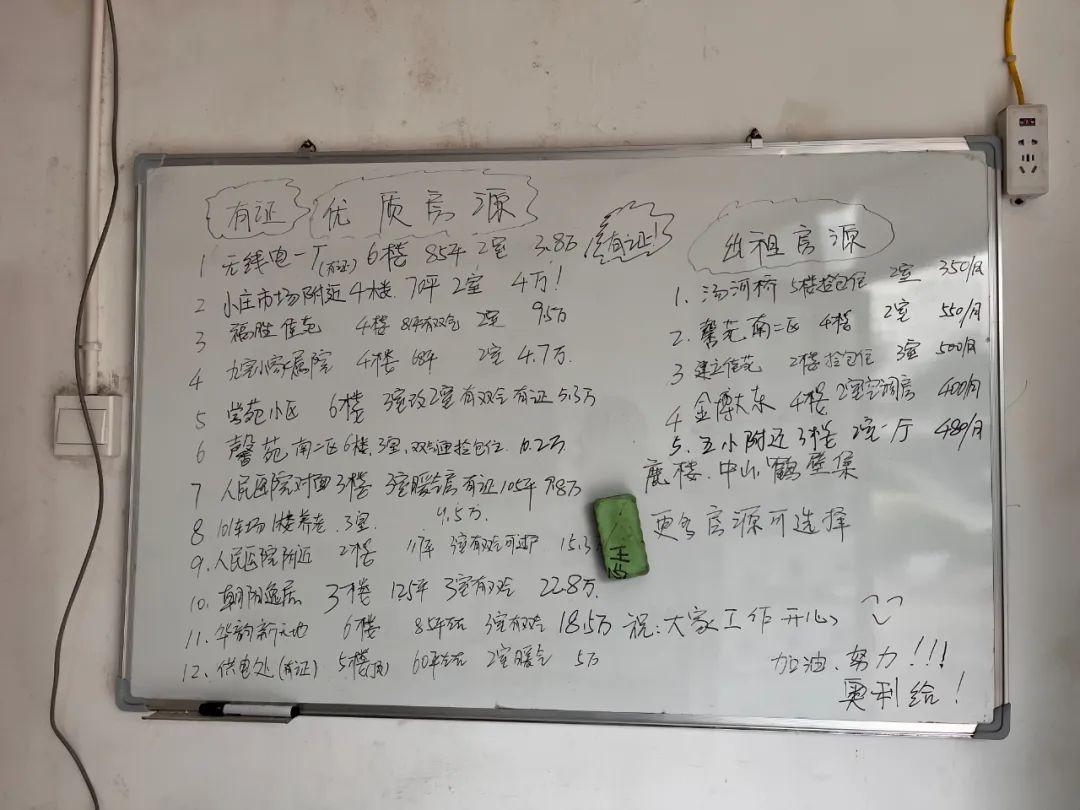 有证 优质房源
有证!
1 无线电一厂(有证) 6楼 85平 2室 3.8万
2 小庄市场附近 4楼. 70平 2室 4万!
3 福胜佳苑 4楼 有双气 2室 9.5万
4 家属院 4楼 68平 2室 4.7万.
5 学苑小区 6楼 3室改2室 有双气 有证 5.3万
6 馨苑南二区 6楼, 3室, 双气 拎包住. 10.2万
7 人民医院对面 3楼 3室暖气房 有证 105平 7.8万
8 101车场 1楼养老, 3室. 4.5万.
9. 人民医院附近 2楼 3室有双气 15.3
10. 朝阳逸居 3楼 125平 3室有双气 22.8万.
11. 华韵新天地 6楼 85平左右 3室有双气 18.5万
12. 供电处(有证) 5楼 60平左右 2室暖气 5万
出租房源
1. 汤河桥 5楼拎包住 2室 350/月
2. 馨苑南二区 4楼 2室 550/月
3 建立佳苑 2楼拎包住 3室 500/月
4 金博大东 4楼 2室空调房 400/月
5. 五小附近 3楼 2室一厅 480/月
鹿楼. 中山, 鹤壁集
更多房源可选择
祝:大家工作开心
加油. 努力!!!
奥利给!